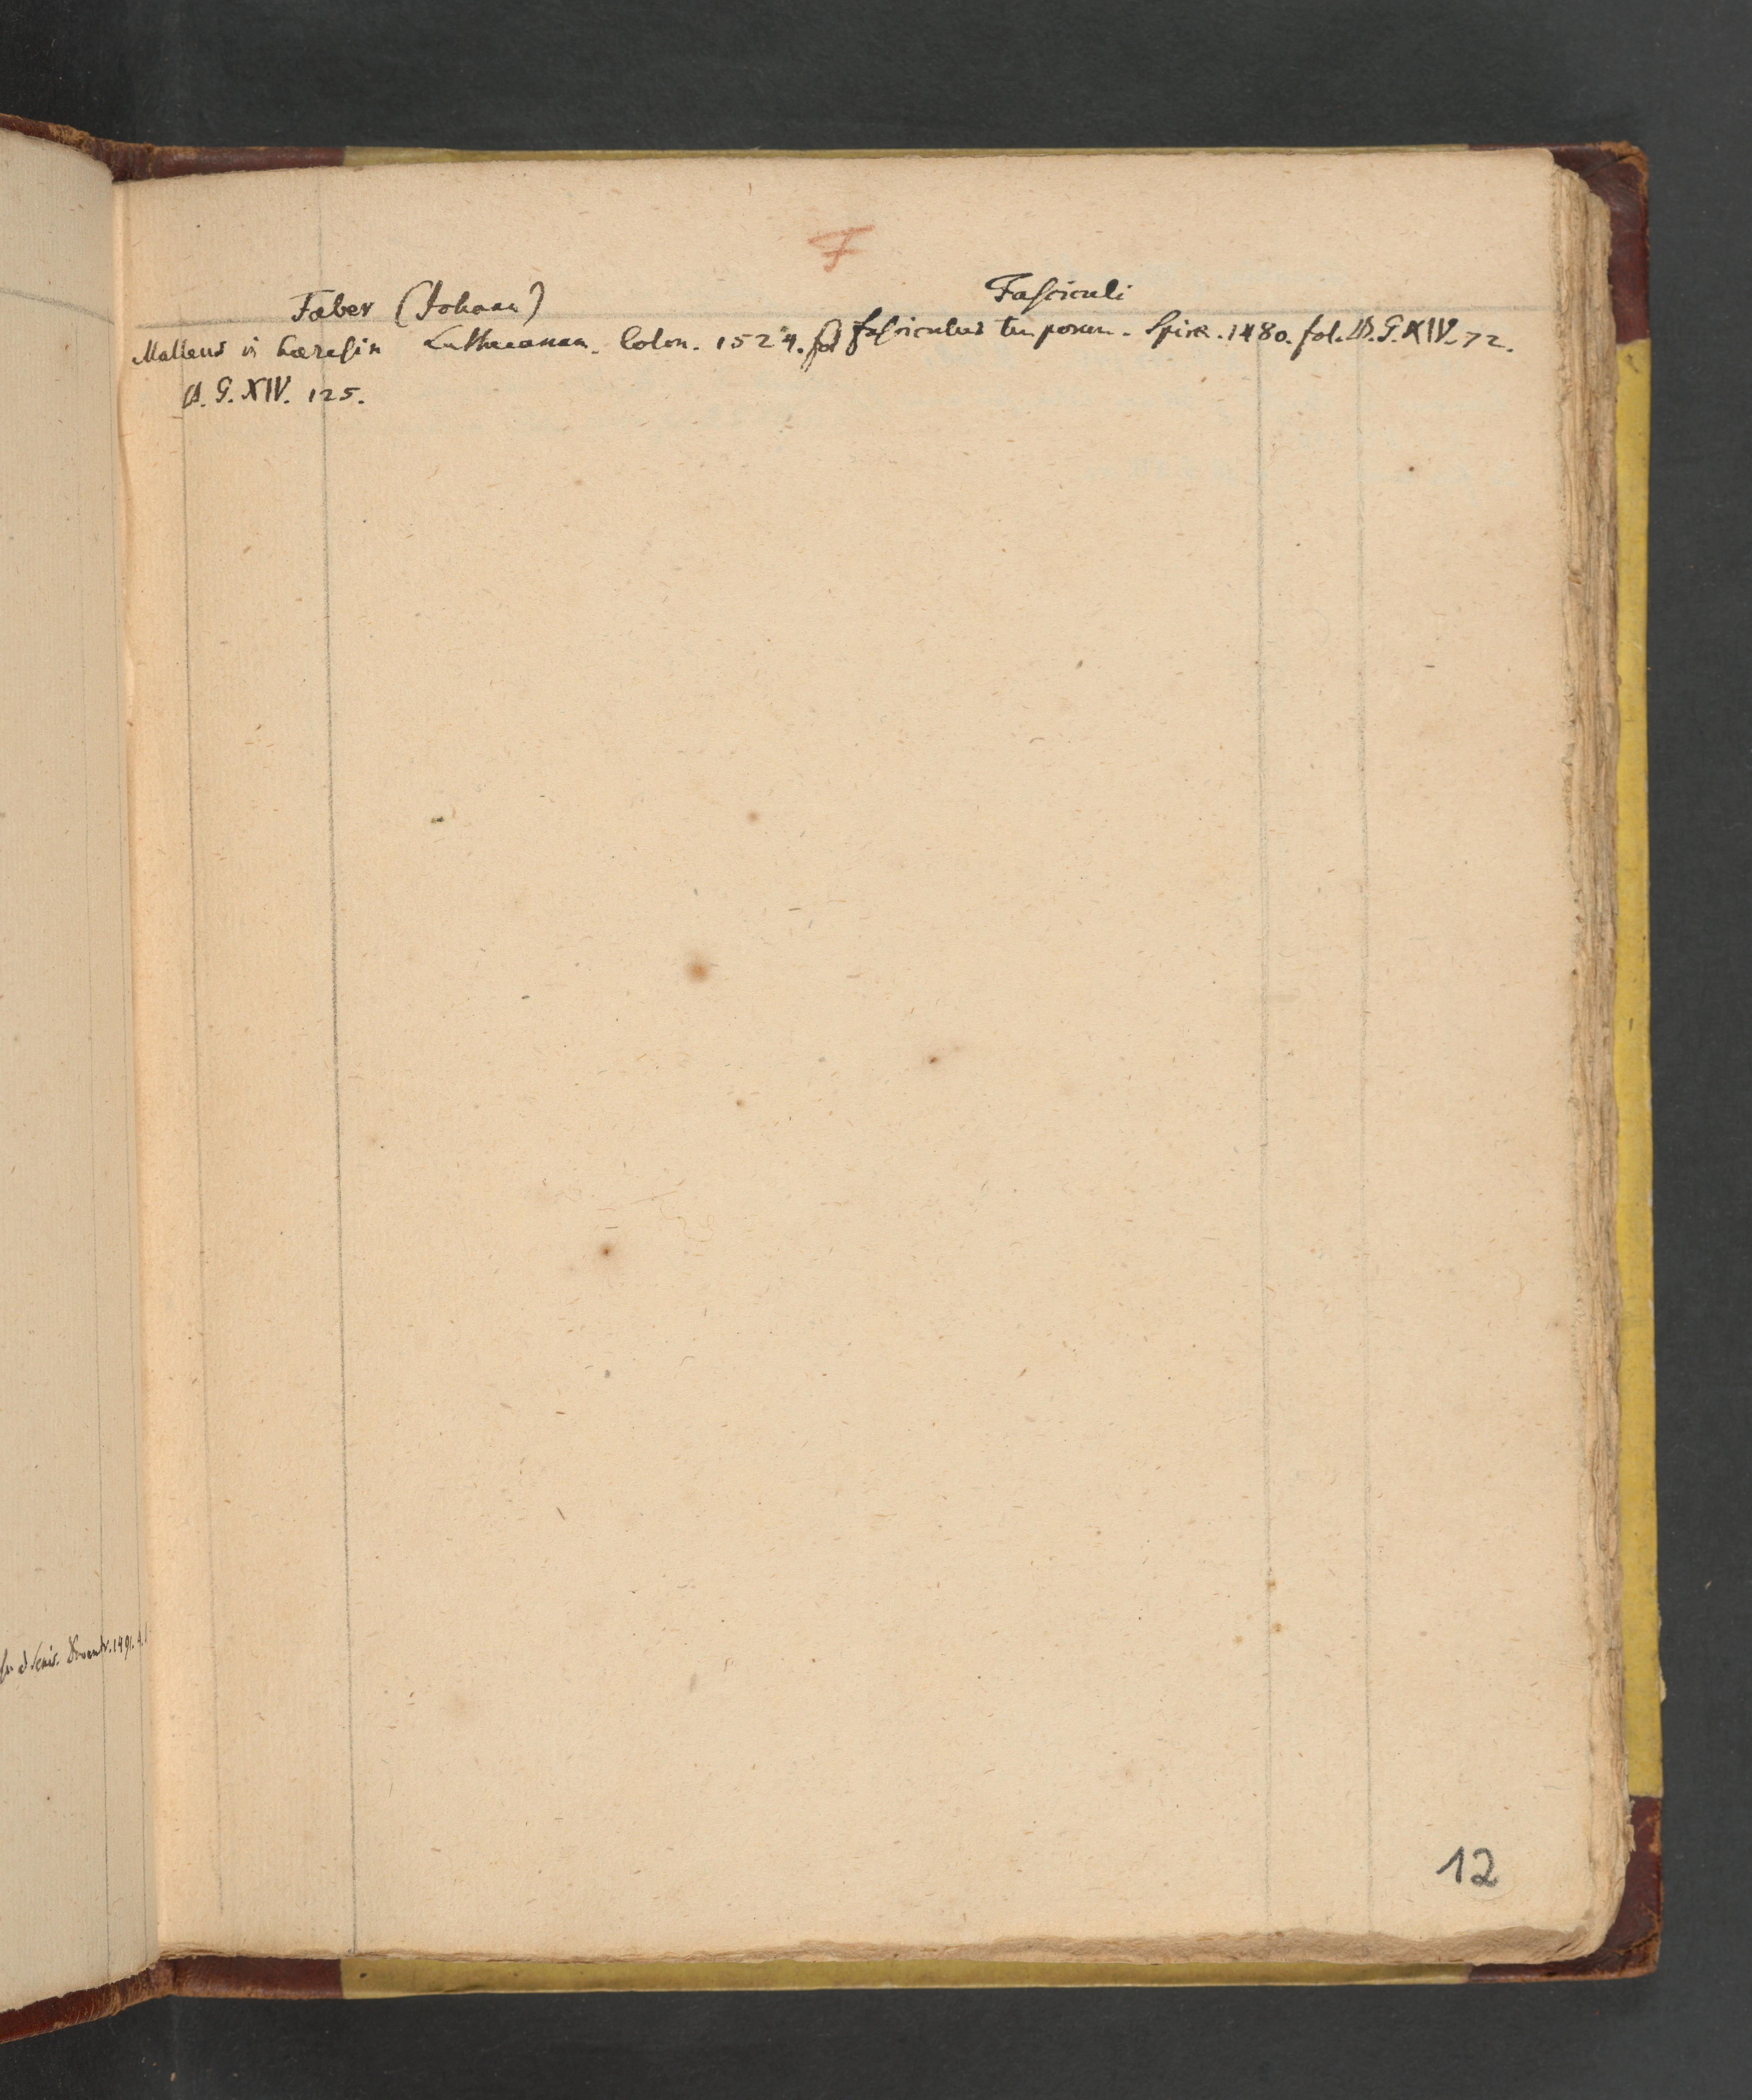 F
Faber (Johann)
Malleus in hæresin Lutheranam. Colon. 1524. fol
B. G. XIV. 125.
Fasciculi
fasciculus temporum. Spiræ. 1480. fol. B. G. XIV. 72.
1491. 4.
12